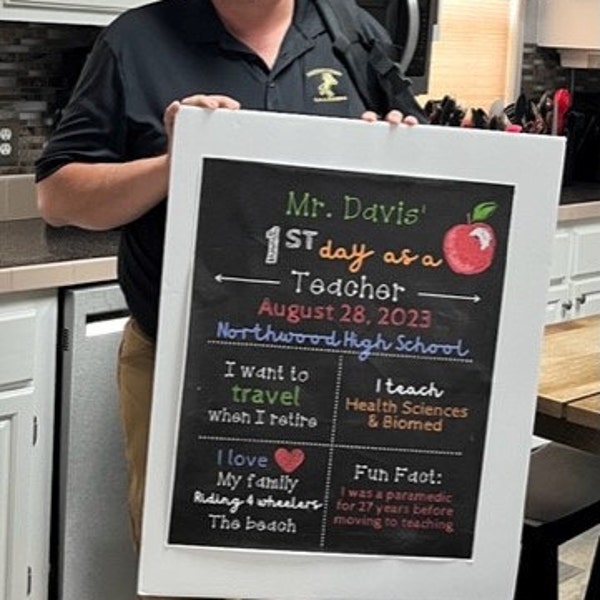 Mr. Davis'
1ST day as a
Teacher
August 28, 2023
Northwood High School
I want to
travel
when I retire
I teach
Health Sciences
& Biomed
I love
My family
Riding 4 wheelers
The beach
Fun Fact:
I was a paramedic
for 27 years before
moving to teaching